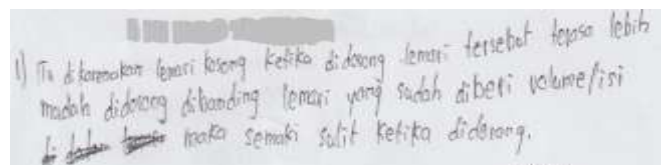 1) Itu dikarenakan lemari kosong ketika didorong lemari tersebut terasa lebih
mudah didorong dibanding lemari yang sudah diberi volume/isi
maka semaki sulit ketika didorong.